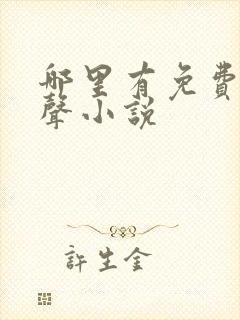 哪里有免費
聲小説
許生金